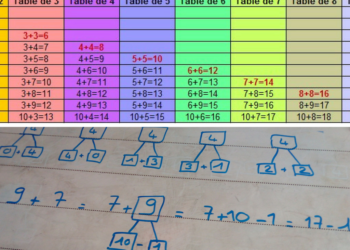 Table de 3 Table de 4 Table de 5 Table de 6 Table de 7 Table de 8
3+3=6
3+4=7 4+4=8
3+5=8 4+5=9 5+5=10
3+6=9 4+6=10 5+6=11 6+6=12
3+7=10 4+7=11 5+7=12 6+7=13 7+7=14
3+8=11 4+8=12 5+8=13 6+8=14 7+8=15 8+8=16
3+9=12 4+9=13 5+9=14 6+9=15 7+9=16 8+9=17
10+3=13 10+4=14 10+5=15 10+6=16 10+7=17 10+8=18
4 4 4 4
0+4 4+0 1+3 3+1 2+2
9+7 = 7+9 = 7+10-1 = 17-1
10-1